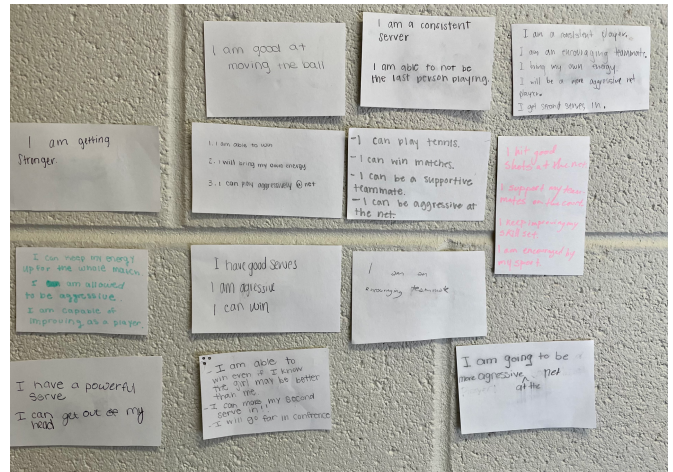 I am good at
moving the ball
I am a consistent
server
I am able to not be
the last person playing.
I am a consistent player.
I am an encouraging teammate.
I bring my own energy.
I will be a more aggressive net
player.
I get strong serves in.
I am getting
Stronger.
1. I am able to win
2. I will bring my own energy
3. I can play aggressively @ net
-I can play tennis.
-I can win matches.
-I can be a supportive
teammate.
-I can be aggressive at
the net.
I hit good
shots at the net
I support my team-
mates on the court
I keep improving my
skill set
I am encouraged by
my sport.
I can keep my energy
up for the whole match.
I am allowed
to be aggressive
I am capable of
improving as a player.
I have good serves
I am agressive
I can win
I am an
encouraging teammate
I have a powerful
serve
I can get out of my
head
- I am able to
win even if I know
the girl may be better
than me
- I can make my second
serve in!!
- I will go far in confrence
I am going to be
more agressive at the net